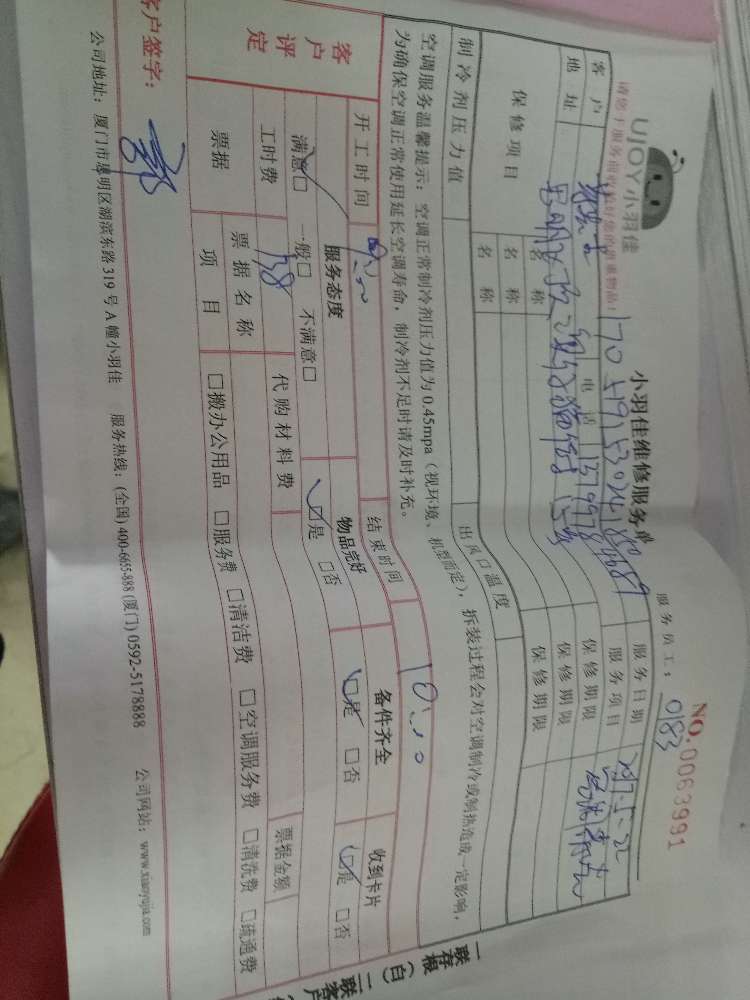 UJOY小羽佳
小羽佳维修服务单
NO.0063991
服务员工：0183
请您于服务前收检好您的贵重物品！
客户
电话
服务日期
地址
服务项目
保修项目
名称
保修期限
名称
保修期限
名称
保修期限
制冷剂压力值
出风口温度
空调服务温馨提示：空调正常制冷剂压力值为0.45mpa（视环境、机型而定），拆装过程会对空调制冷或制热造成一定影响，
为确保空调正常使用延长空调寿命，制冷剂不足时请及时补充。
开工时间
结束时间
客户评定
服务态度
物品完好
备件齐全
收到卡片
满意□ 一般□ 不满意□
□是 □否
□是 □否
□是 □否
工时费
代购材料费
票据金额
票据
票据名称
项目
□搬办公用品 □服务费 □清洁费 □空调服务费 □清洗费 □疏通费
客户签字：
公司地址：厦门市思明区湖滨东路319号A幢小羽佳 服务热线：(全国)400-6655-888(厦门)0592-5178888 公司网站：www.xiaoyujia.com
一联存根（白）二联客户